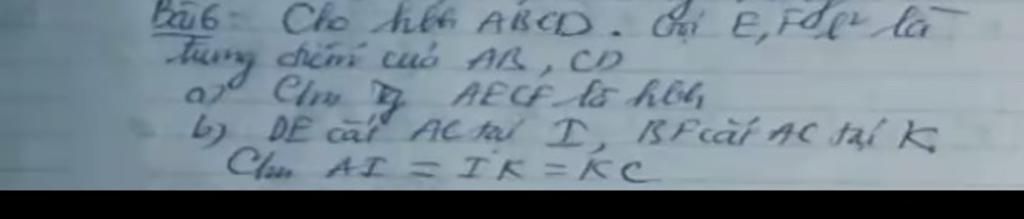 Bài 6: Cho hbh ABCD. Gọi E, F lần lượt là
trung điểm của AB, CD
a) Cm tg AECF là hbh
b) DE cắt AC tại I, BF cắt AC tại K.
Cm AI = IK = KC